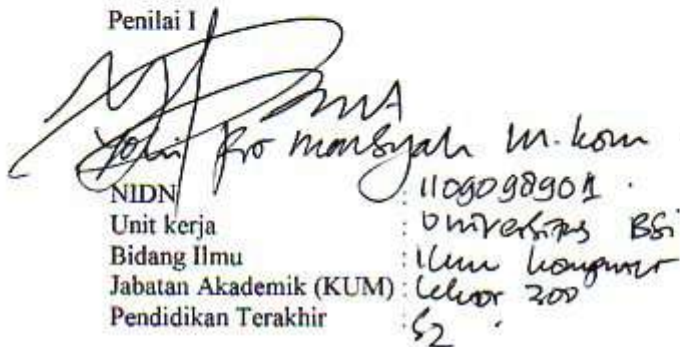 Penilai I
Firmansyah M.Kom
NIDN : 1109098901
Unit kerja : Universitas BSi
Bidang Ilmu : Ilmu komputer
Jabatan Akademik (KUM) : Lektor 200
Pendidikan Terakhir : S2